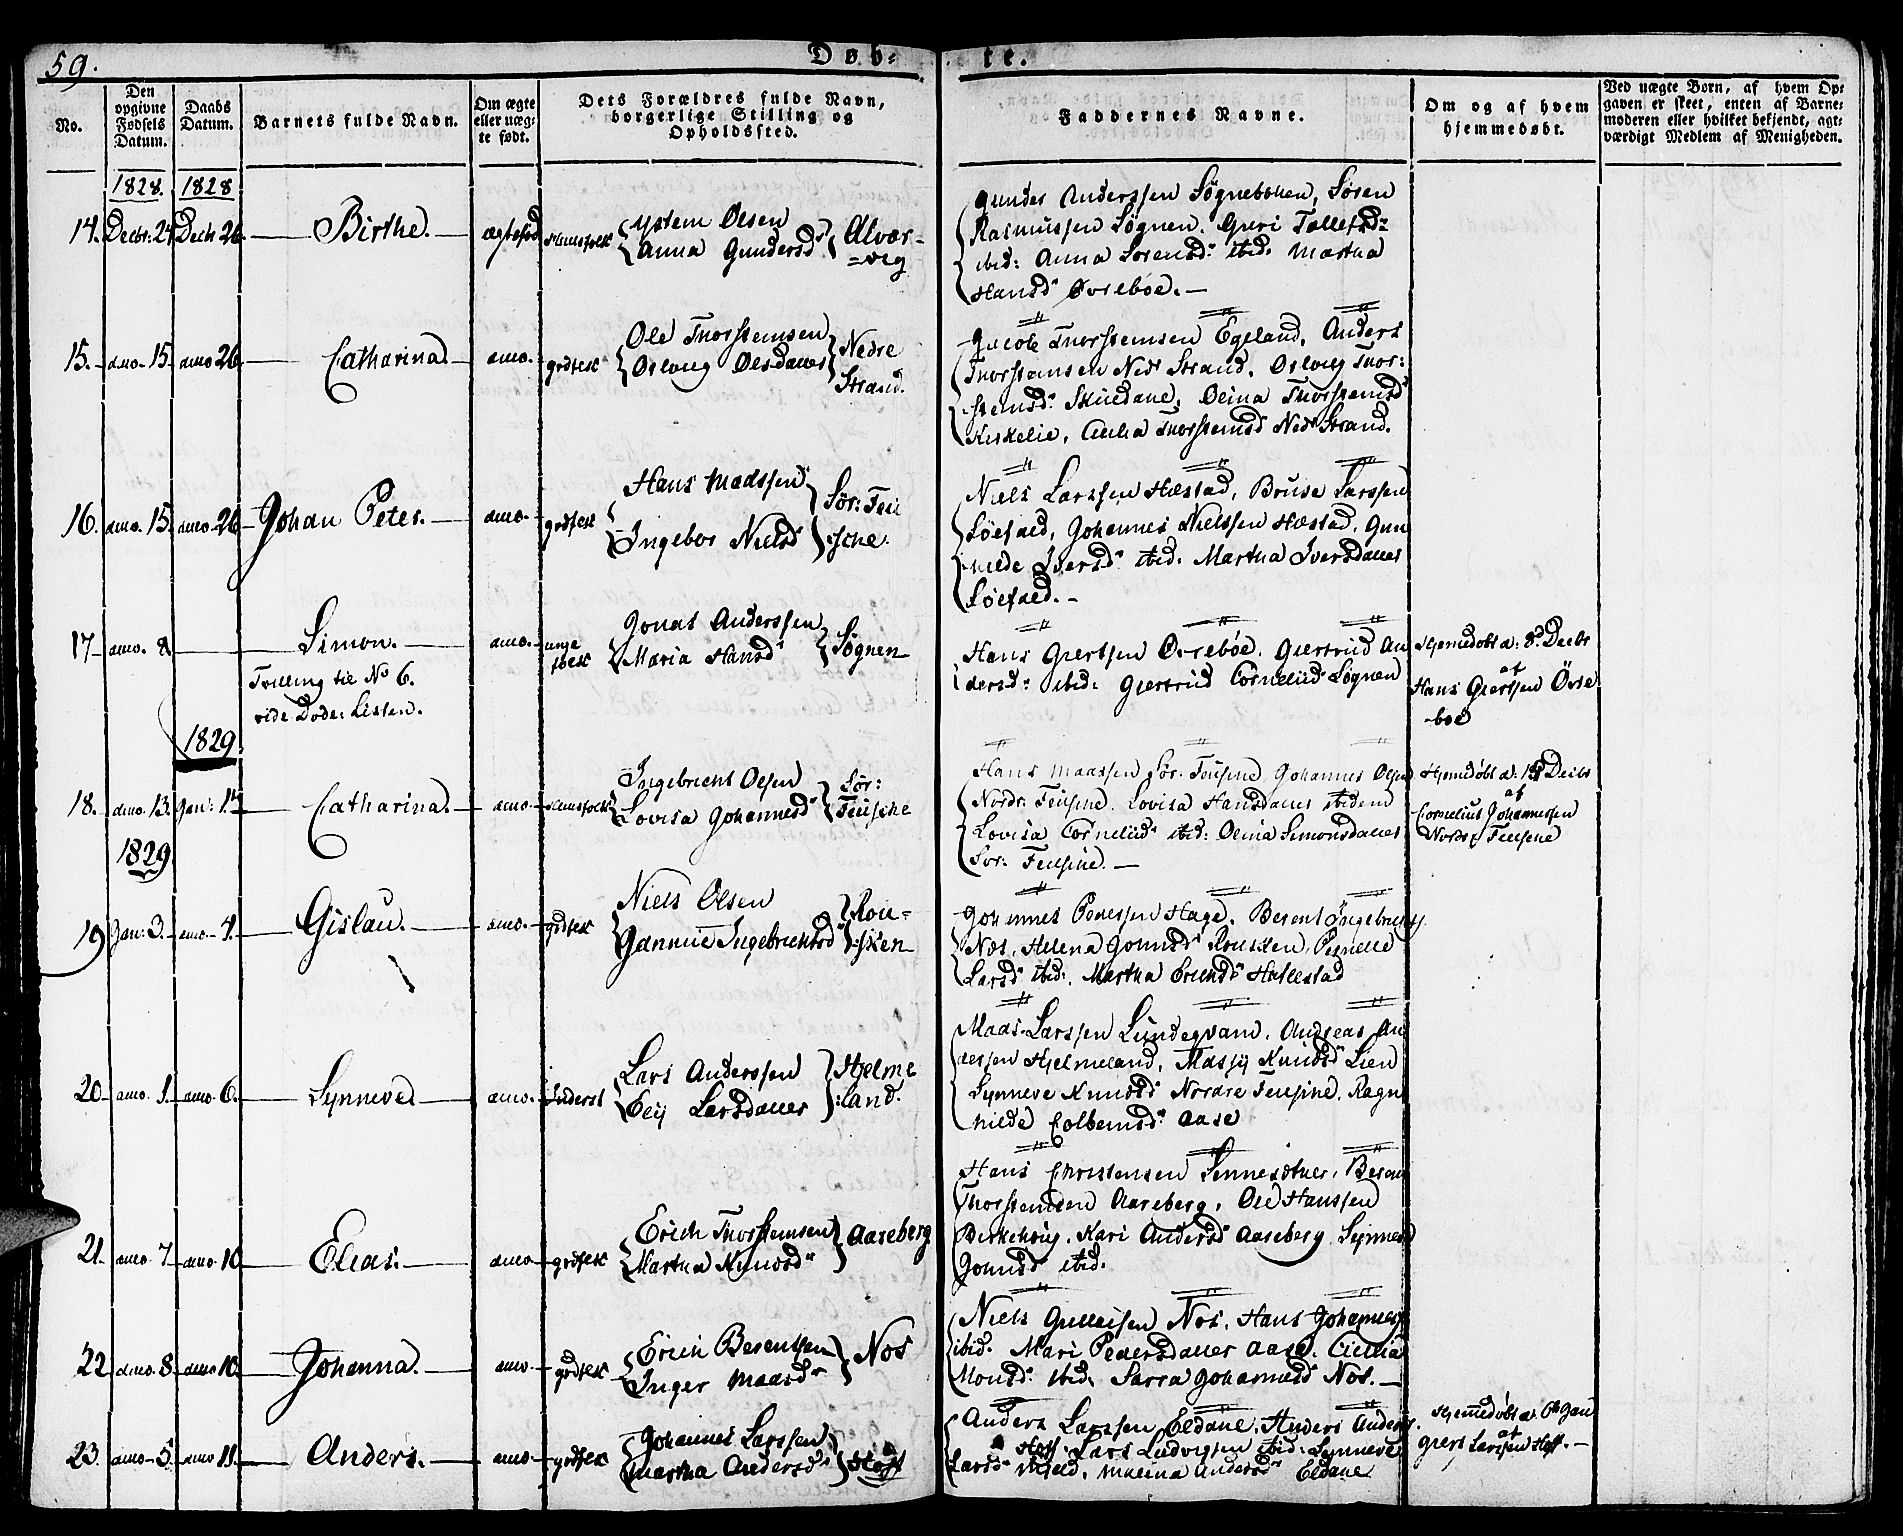 59.
Døb- te.
No.
Den opgivne Fødsels Datum.
Daabs Datum.
Barnets fulde Navn.
Om ægte eller uægte født.
Dets Forældres fulde Navn, borgerlige Stilling og Opholdsted.
Faddernes Navne.
Om og af hvem hjemmedøbt.
Ved uægte Børn, af hvem Opgaven er skeet, enten af Barnemoderen eller hvilket bekjendt, agtværdigt Medlem af Menigheden.
1828. 1828
14. Decbr: 24 Decbr 26. Birthe. ægtefød Huusfolk
Ostem Olsen
Anna Gundersd
Alvær-
=veg
Gunder Anderssen Søgnebotten, Søren
Rasmussen Søgnen. Guri Tollefsd
ibid: Anna Sorensd: ibid. Martha
Hansd Øvrebøe.
15. dmo. 15 dmo 26. Catharina dmo. grdfolk
Ole Thorstensen
Oslaug Olsdatter
Nedre
Strand.
Jacob Thorstensen Egeland, Anders
Thorstensen Nedr Strand, Oslaug Thor:
stensd: Skieldane, Olina Thorstensd
Kirkelie, Cicilia Thorstensd Nedr Strand.
16. dmo. 15. dmo 26 Johan Peter. dmo. grdfolk
Hans Madssen
Ingebor Nielsd
Sør: Feu
:sche.
Niels Larssen Hæstad, Bruse Larssen
Løefald, Johannes Nielssen Hæstad. Gun
:hilde Iversd ibid. Martha Iversdatter
Løefald.
17 dmo. 8. Simon. dmo. unge folk
Tvilling til No 6.
vide Døde: Listen.
Jonas Anderssen
Maria Hansd
Søgnen
Hans Giertsen Øvrebøe, Giertrud An
dersd: ibid: Giertrud Corneliid Søgnen
Hjemedøbt d: 8de Decbr
af
Hans Giertsen Øvre
bøe
1829.
18. dmo. 13. Jan: 1. Catharina. dmo Huusfolk
Ingebricht Olsen
Lovisa Johannesd
Sør:
Feusche
Hans Maassen Sør: Feusche Johannes Olsen
Nordr: Feusche. Lovisa Hansdatter ibidem
Lovisa Corneliid ibid: Olina Simonsdatter
Sør: Feusche.
Hjemedøbt d: Decbr
af
Cornelius Johannessen
Nordr Feusche
1829
19 Jan: 3. dmo 4. Gislau. dmo. grdfolk
Niels Olsen
Gannue Ingebrichtsd
Rou=
:sken
Johannes Pedersen Hage, Berent Ingebrichts.
Nos, Helena Jonnsd Rousken, Pernelle
Larsd ibid: Martha Erichsd Hatlestad
20 dmo. 1. dmo 6. Synneve. dmo. Inderst
Lars Anderssen
Eeg Larsdatter
Hjelme
:land.
Maas Larssen Lundeqvam, Andreas An
derssen Hjelmeland, Massj Knudsd Lien
Synneve Knudsd Nordre Feusche. Ragn
hilde Colbensd: Aase
21. dmo 7. dmo 10 Elias. dmo grdfolk
Erich Thorstensen
Martha Knudsd
Aareberg
Hans Christensen Sennesøtner, Berent
Thorstensen Aareberg, Ole Hanssen
Birkehoug. Kari Andersd Aareberg Synneve
Jonnsd ibid.
22 dmo. 8. dmo 10. Johanna. dmo. grdfolk
Erich Berentsen
Inger Maasd
Nos
Niels Gulleisen Nos, Hans Johannes
ibid. Mari Pedersdatter Aase, Cicilia
Monsd: ibid, Sarra Johannesd Nos.
23. dmo. 5. dmo 11. Anders. dmo grdfolk
Johannes Larssen
Martha Andersd
Hoff
Anders Larssen Eldane, Anders Anders.
Hoff. Lars Ludvigsen ibid: Synneve
Larsd ibid, Andersd Eldane
Hjemedøbt d: Jan
af
Giert Larssen Hoff.